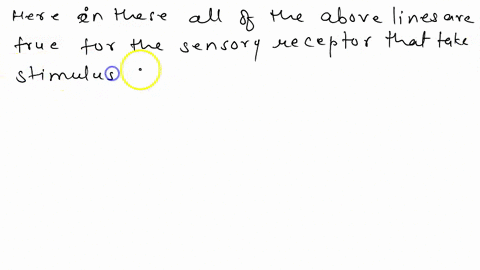 Here in these all of the above lines are
true for the sensory receptor that take
stimulus .